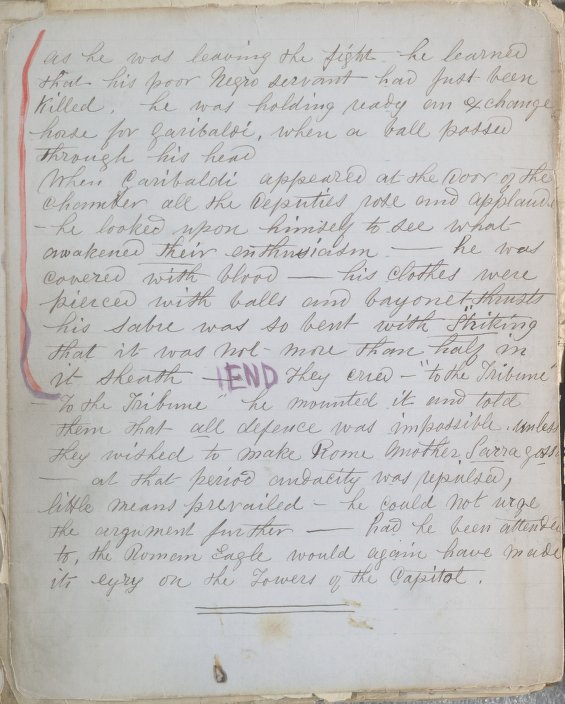 as he was leaving the fight he learned
that his poor Negro servant had Just been
Killed. he was holding ready an exchange
horse for Garibaldi, when a ball passed
through his head
When Garibaldi appeared at the door of the
Chamber all the Deputies rose and applauded
- he looked upon himself to see what
awakened their enthusicasm — he was
covered with blood — his clothes were
pierced with balls and bayonet thrusts
his sabre was so bent with striking
that it was not more than half in
it sheath — END They cried - "to the Tribune"
- "To the Tribune" he mounted it and told
them that all defence was impossible unless
they wished to make Rome another Sarragossa
— at that period audacity was repulsed,
little means prevailed - he could not urge
the argument further — had he been attended
to, the Roman Eagle would again have made
its eyry on the Towers of the Capitol.